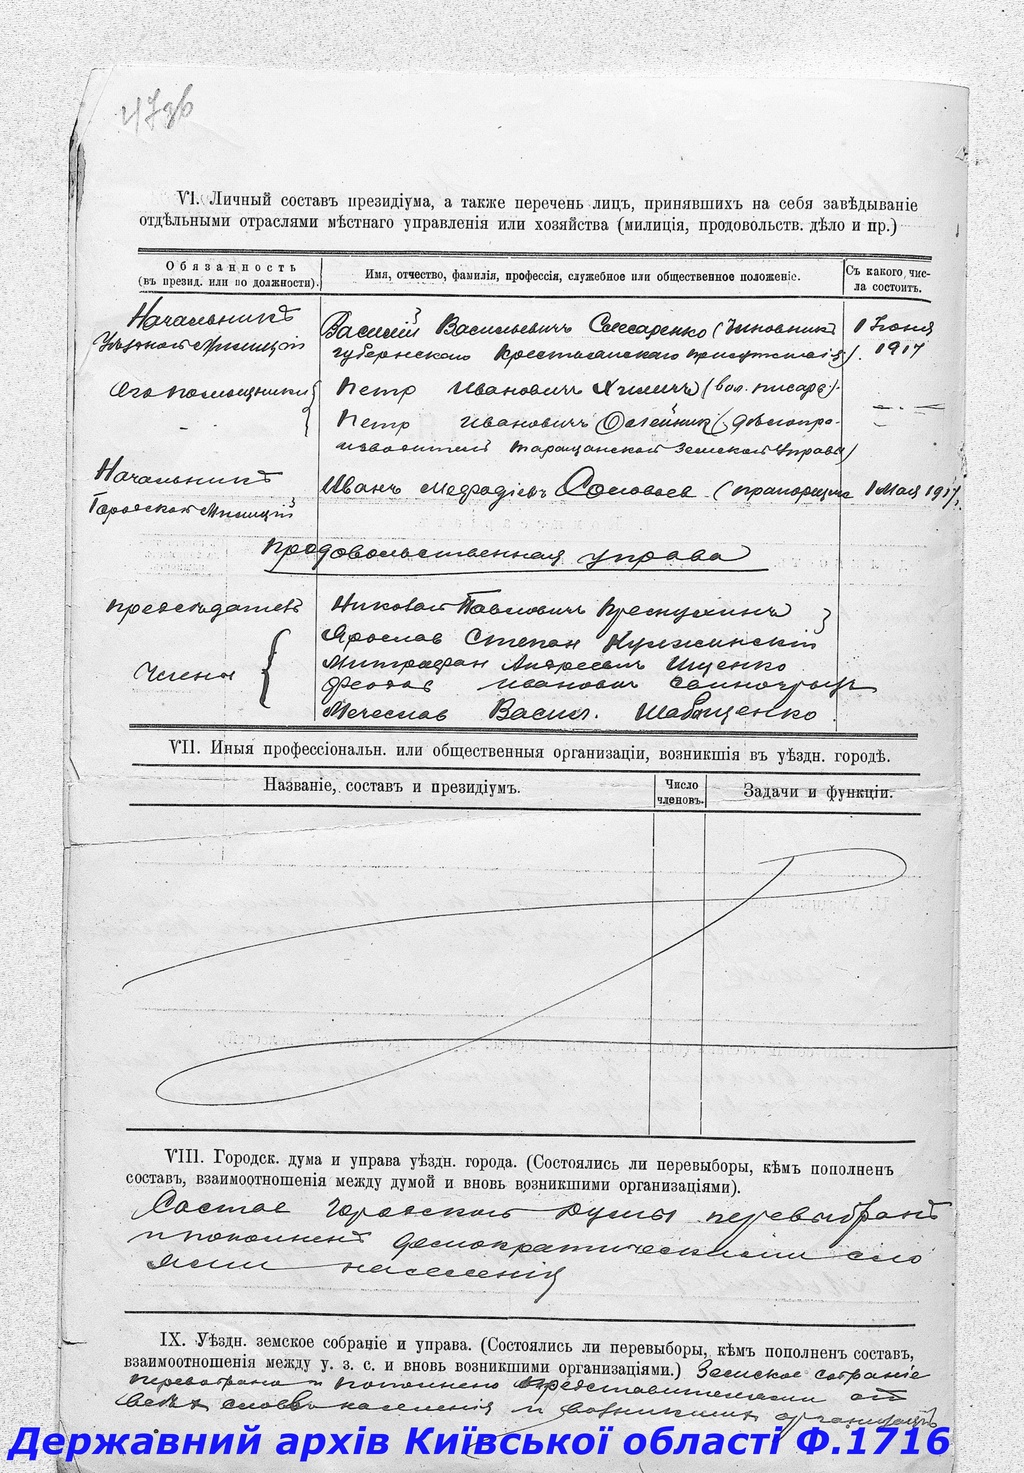 47об
VI. Личный составъ президіума, а также перечень лицъ, принявшихъ на себя завѣдываніе
отдѣльными отраслями мѣстнаго управленія или хозяйства (милиція, продовольств. дѣло и пр.)
Обязанность
(въ презид. или по должности).
Имя, отчество, фамилія, профессія, служебное или общественное положеніе.
Съ какого чис-
ла состоитъ.
Начальникъ
Уѣздной Милиціи
Василій Васильевичъ Слюсаренко (Чиновникъ
губернскаго Крестьянскаго присутствія).
1 Іюня
1917
Его помощники
Петр Ивановичъ Химичъ (вол. писарь).
Петр Ивановичъ Олейник (дѣлопро-
изводитель Таращанской Земской Управы)
Начальникъ
Городской Милиціи
Иванъ Соловьев (прапорщикъ
1 Мая 1917 г.
Продовольственная управа
Председатель
Николай Павловичъ
Члены
Ярослав Степан
Митрофан Андреевичъ Ищенко
Феодос Иванович
Мечеслав Васил.
VII. Иныя профессіональн. или общественныя организаціи, возникшія въ уѣздн. городѣ.
Названіе, составъ и президіумъ.
Число
членовъ.
Задачи и функціи.
VIII. Городск. дума и управа уѣздн. города. (Состоялись ли перевыборы, кѣмъ пополненъ
составъ, взаимоотношенія между думой и вновь возникшими организаціями).
Состав Городской Думы перевыбранъ
и пополненъ демократическими сло
ями населенія
IX. Уѣздн. земское собраніе и управа. (Состоялись ли перевыборы, кѣмъ пополненъ составъ,
взаимоотношенія между у. з. с. и вновь возникшими организаціями.) Земское собраніе
перевыбрано и пополнено представителями от
всѣх слоевъ населенія и возникших организацій
Державний архів Київської області Ф.1716